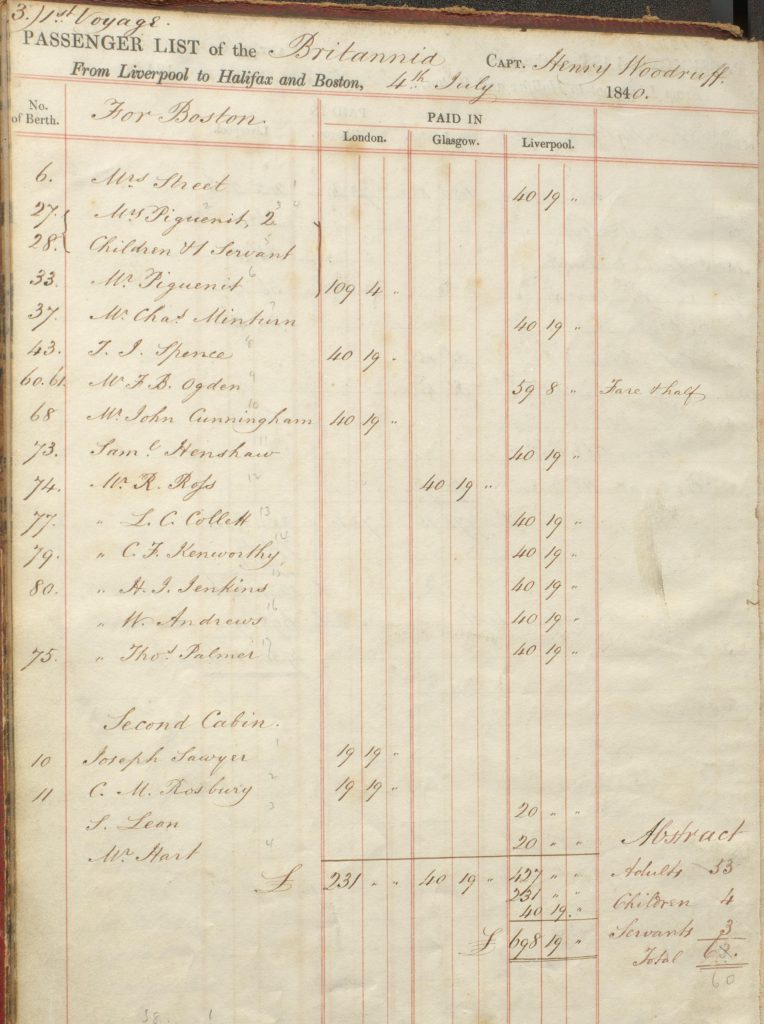 3.) 1st Voyage.
PASSENGER LIST of the Britannia CAPT. Henry Woodruff.
From Liverpool to Halifax and Boston, 4th July 1840.
No. of Berth. For Boston. PAID IN
London. Glasgow. Liverpool.
6. Mrs Street 1 40 19 "
27. Mrs Piguenit, 2 2 3 4
28. Children & 1 Servant 5
33. Mr Piguenit 6 109 4 "
37. Mr Chas Minturn 7 40 19 "
43. T. I. Spence 8 40 19 "
60.61. Mr F. B. Ogden 9 59 8 " Fare & half
68 Mr John Cunningham 10 40 19 "
73. Saml Henshaw 11 40 19 "
74. Mr R. Ross 12 40 19 "
77. " L. C. Collett 13 40 19 "
79. " C. F. Kenworthy 14 40 19 "
80. " H. I. Jenkins 15 40 19 "
" W. Andrews 16 40 19 "
75. " Thos Palmer 17 40 19 "
Second Cabin.
10 Joseph Sawyer 1 19 19 "
11 C. M. Rosbury 2 19 19 "
S. Leon 3 20 " "
Mr Hart 4 20 " "
Abstract
£ 231 " " 40 19 " 427 " " Adults 53
231 " "
40 19. " Children 4
Servants 3
£ 698 19 " Total 63.
60
58. 1